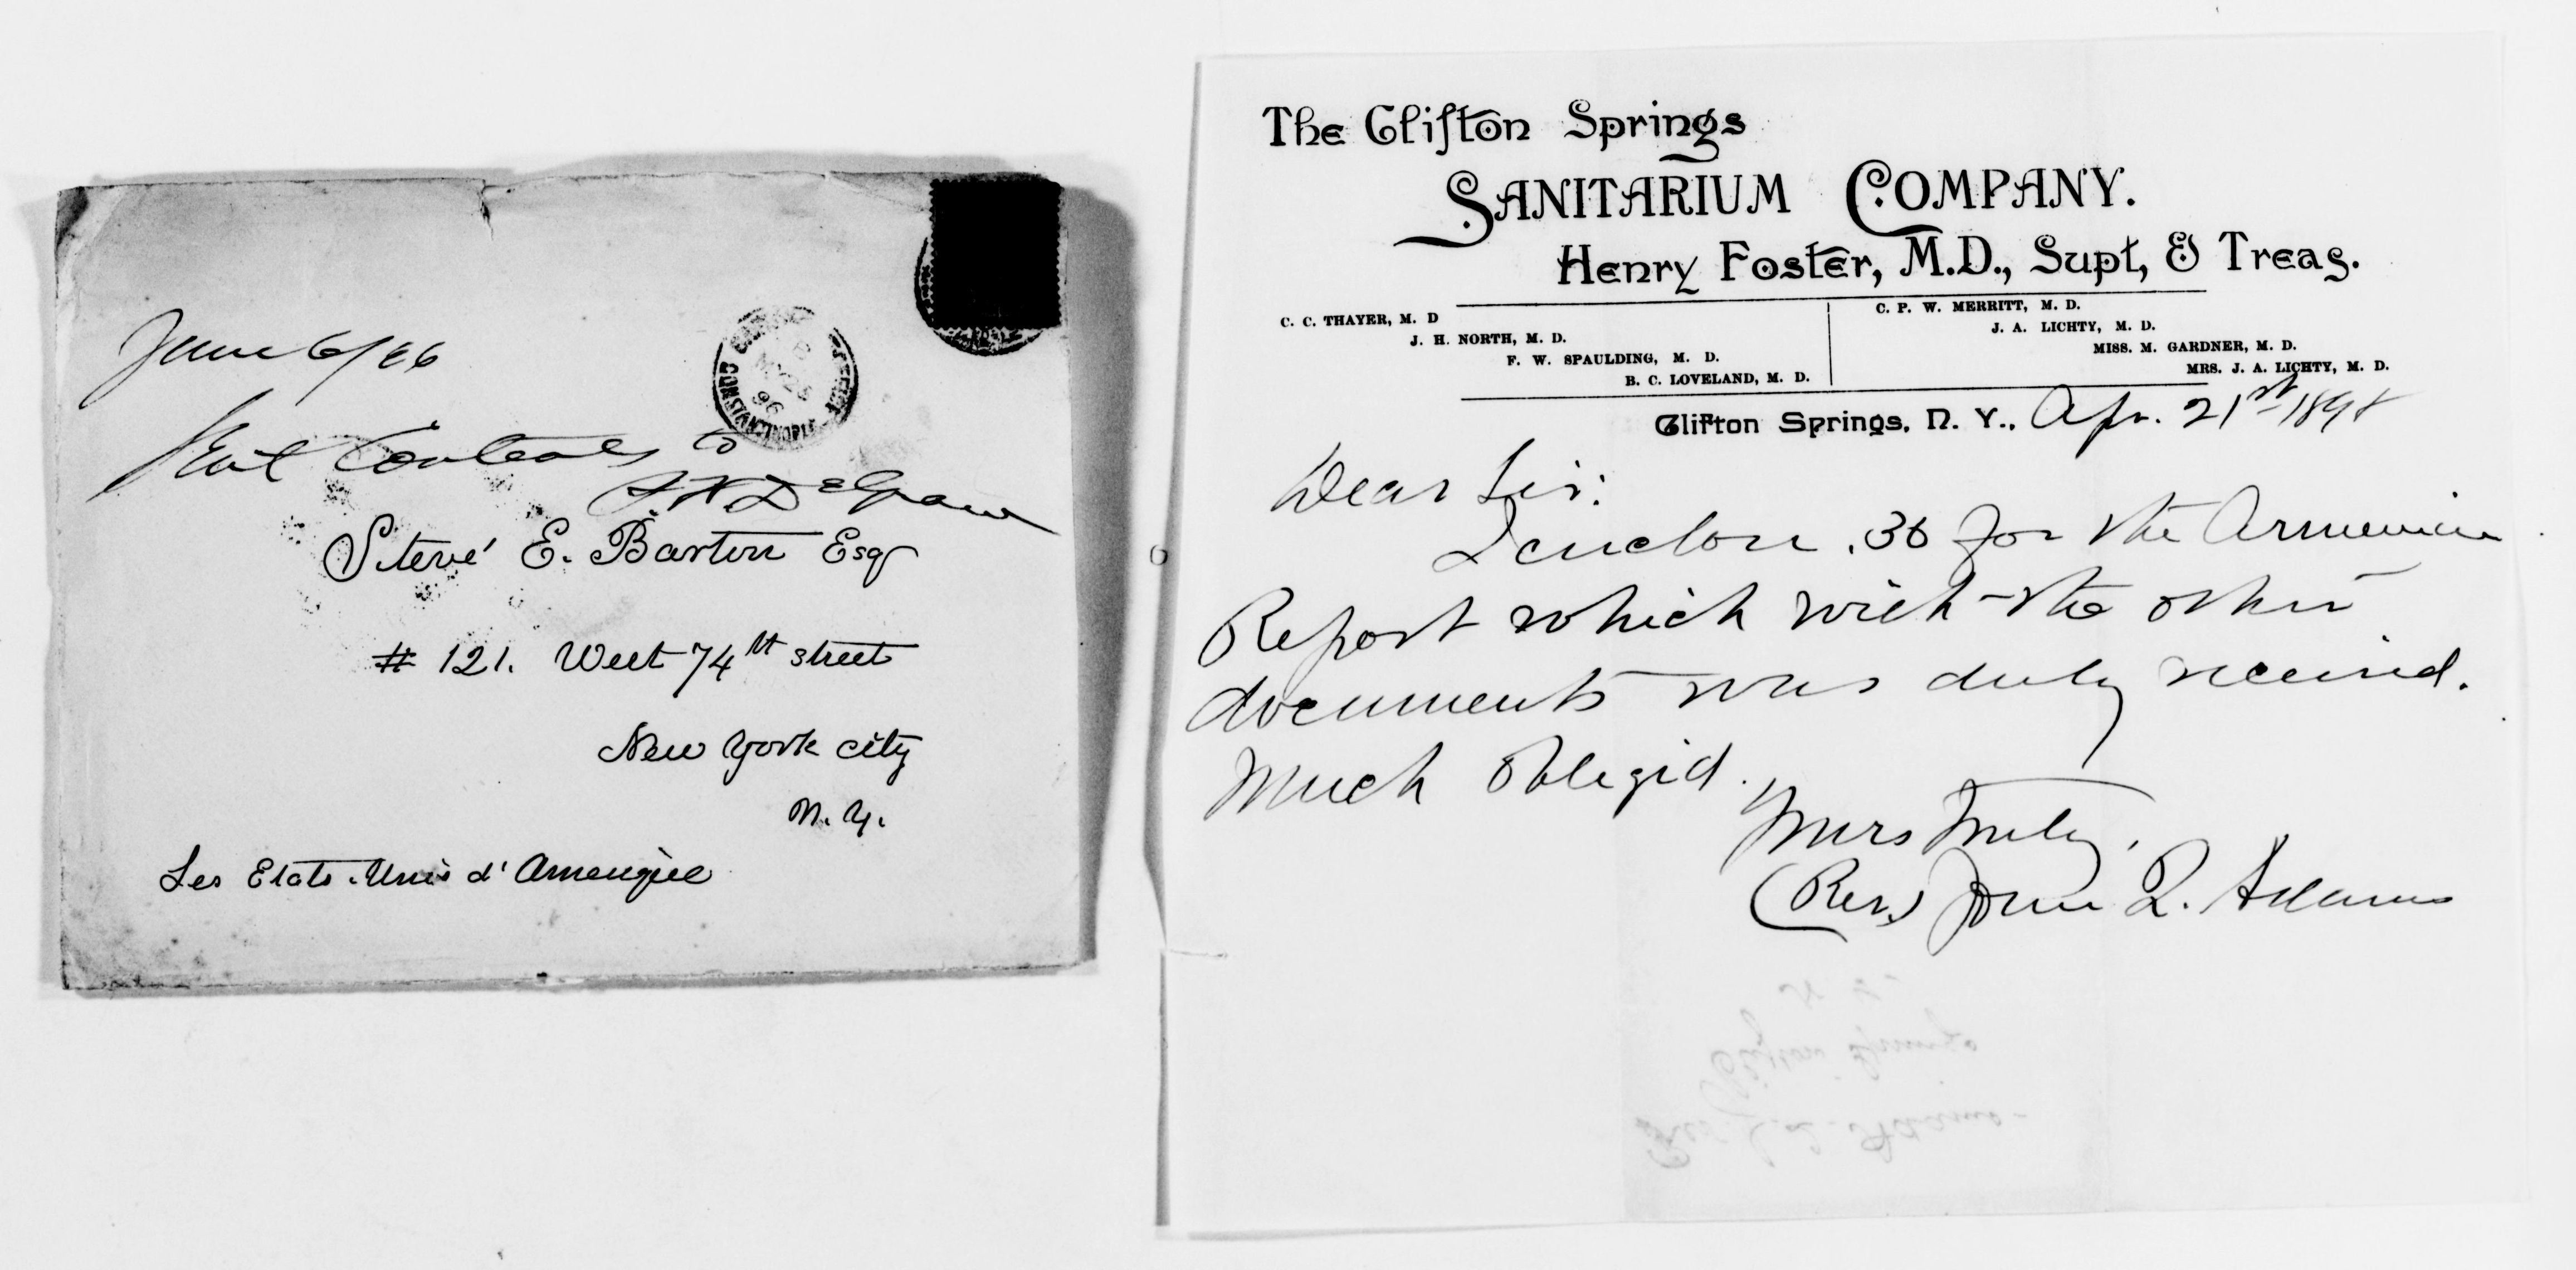 June 6/96
Sent Contents to
Steve' E. Barton Esq
# 121. West 74th street
New York city
N. Y.
Les Etats-Unis d'Amerique
CONSTANTINOPLE
96
The Clifton Springs
SANITARIUM COMPANY.
Henry Foster, M.D., Supt, & Treas.
C. C. THAYER, M. D
J. H. NORTH, M. D.
F. W. SPAULDING, M. D.
B. C. LOVELAND, M. D.
C. P. W. MERRITT, M. D.
J. A. LICHTY, M. D.
MISS. M. GARDNER, M. D.
MRS. J. A. LICHTY, M. D.
Clifton Springs, N. Y., Apr. 21st 1898
Dear Sir:
I enclose .36 for the Armenian
Report which with the other
documents was duly received.
Much obliged.
Yours Truly,
(Rev.) John Q. Adams
Rev. J. Q. Adams
Clifton Springs
N. Y.